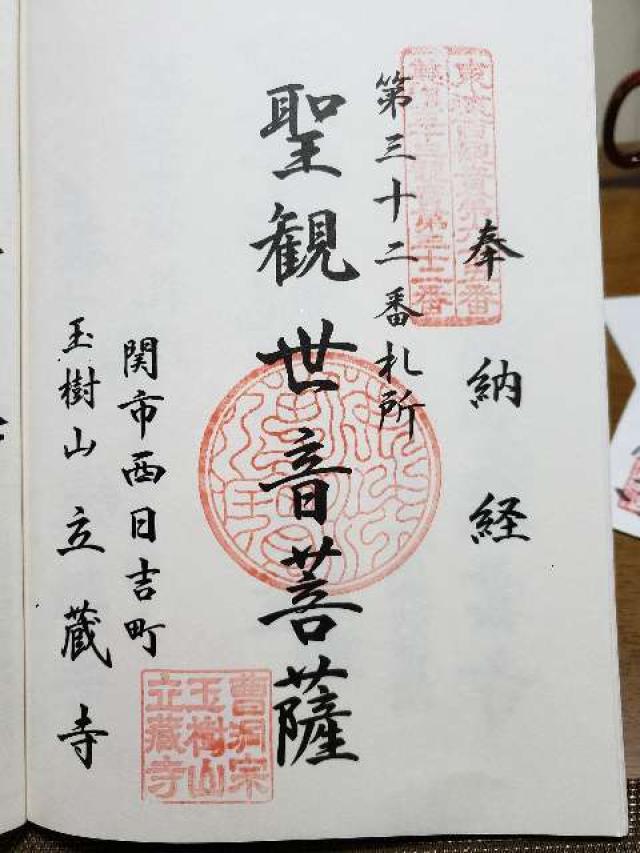 奉納経
第三十二番札所
聖観世音菩薩
関市西日吉町
玉樹山立蔵寺
第三十二番
曹洞宗
玉樹山
立蔵寺